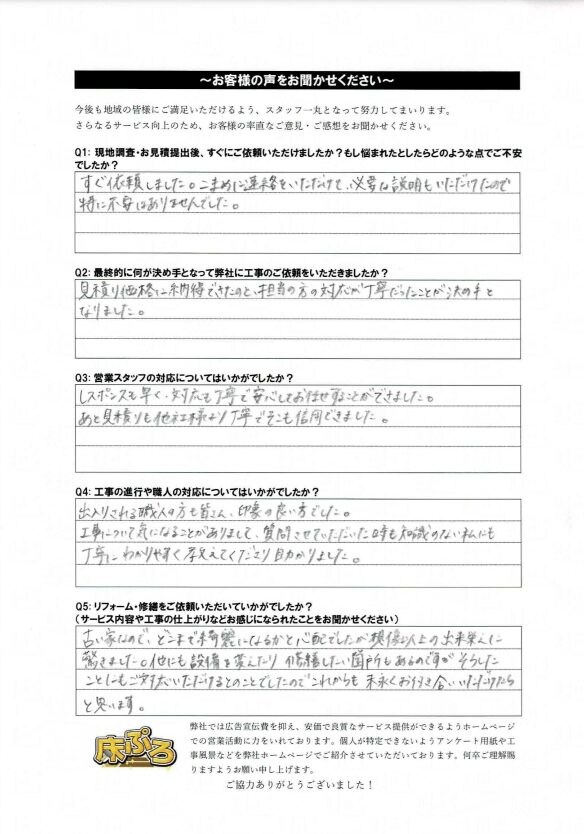 ～お客様の声をお聞かせください～
今後も地域の皆様にご満足いただけるよう、スタッフ一丸となって努力してまいります。
さらなるサービス向上のため、お客様の率直なご意見・ご感想をお聞かせください。
Q1: 現地調査・お見積提出後、すぐにご依頼いただけましたか？もし悩まれたとしたらどのような点でご不安
でしたか？
すぐ依頼しました。こまめに連絡をいただけて、必要な説明もいただけたので
特に不安はありませんでした。
Q2: 最終的に何が決め手となって弊社に工事のご依頼をいただきましたか？
見積り価格に納得できたのと、担当の方の対応が丁寧だったことが決め手と
なりました。
Q3: 営業スタッフの対応についてはいかがでしたか？
レスポンスも早く、対応も丁寧で安心してお任せすることができました。
あと見積りも他社様より丁寧でそこも信用できました。
Q4: 工事の進行や職人の対応についてはいかがでしたか？
出入りされる職人の方も皆さん、印象の良い方でした。
工事について気になることがありまして、質問させていただいた時も知識のない私にも
丁寧にわかりやすく教えてくださり助かりました。
Q5: リフォーム・修繕をご依頼いただいていかがでしたか？
（サービス内容や工事の仕上がりなどお感じになられたことをお聞かせください）
古い家なので、どこまで綺麗になるかと心配でしたが想像以上の出来栄えに
驚きました。他にも設備を変えたり修繕したい箇所もあるのですがそうした
ことにもご対応いただけるとのことでしたのでこれからも末永くお付き合いいただけたら
と思います。
床ぷろ
弊社では広告宣伝費を抑え、安価で良質なサービス提供ができるようホームページ
での営業活動に力をいれております。個人が特定できないようアンケート用紙や工
事風景などを弊社ホームページでご紹介させていただいております。何卒ご理解賜
りますようお願い申し上げます。
ご協力ありがとうございました！